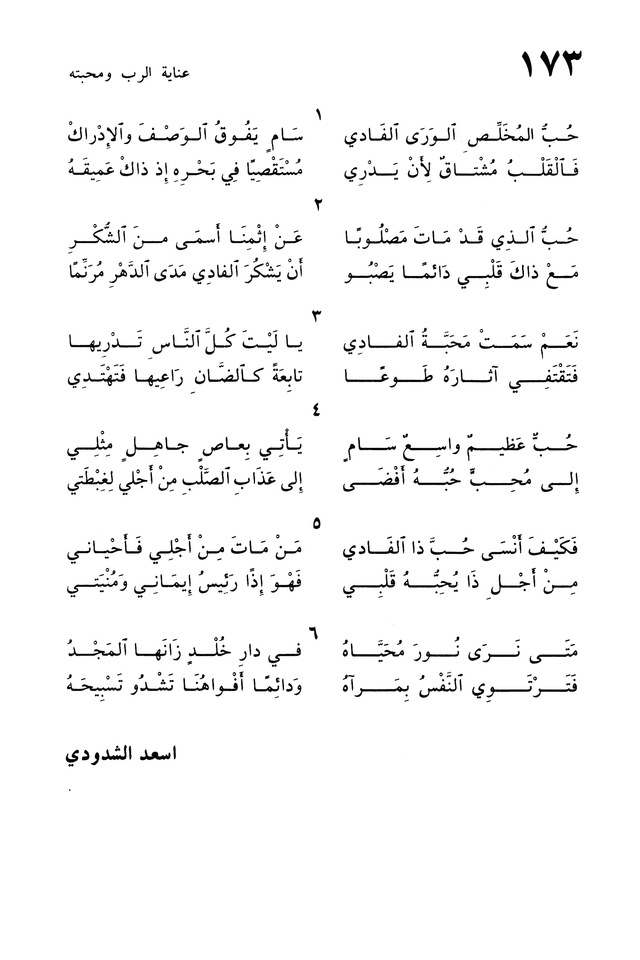 ١٧٣
عناية الرب ومحبته
١
حُبُّ المُخَلِّصِ ٱلوَرَى ٱلفَادي سَامٍ يَفُوقُ ٱلوَصْفَ وٱلإدْراكْ
فَٱلْقَلْبُ مُشْتاقٌ لِأنْ يَدْرِي مُسْتَقْصِيًا فِي بَحْرِهِ إذ ذاكْ عَمِيقَهُ
٢
حُبُّ ٱلذِي قَدْ مَاتَ مَصْلُوبًا عَنْ إثْمِنَا أسمَى منَ ٱلشُّكْرِ
مَعْ ذاكَ قَلْبِي دَائمًا يَصْبُو أنْ يَشْكُرَ ٱلفادِي مَدَى ٱلدَّهْرِ مُرَنِّمًا
٣
نَعَمْ سَمَتْ مَحَبَّةُ ٱلفادِي يا لَيْتَ كُلَّ ٱلنَّاسِ تَدْرِيها
فَتَقْتَفِي آثارَهُ طَوعًا تابِعَةً كٱلضَّانِ رَاعِيها فَتَهْتَدِي
٤
حُبٌّ عَظِيمٌ واسِعٌ سَامٍ يَأْتِي بِعاصٍ جاهِلٍ مِثْلِي
إلى مُحِبٍّ حُبُّهُ أفْضَى إلى عَذَابِ ٱلصَّلْبِ مِنْ أجْلِي لِغِبْطَتي
٥
فَكَيْفَ أنْسَى حُبَّ ذا ٱلفَادِي مَنْ مَاتَ مِنْ أجْلِي فَأحْياني
مِنْ أجْلِ ذَا يُحِبُّهُ قَلْبِي فَهْوَ إذًا رَئِيسُ إيمَانِي ومُنْيَتي
٦
مَتَى نَرَى نُورَ مُحَيَّاهُ في دارِ خُلْدٍ زَانَها ٱلمَجْدُ
فَتَرْتَوِي ٱلنَّفْسُ بِمَرآهُ وَدائِمًا أفْواهُنَا تَشْدُو تَسْبِيحَهُ
اسعد الشدودي